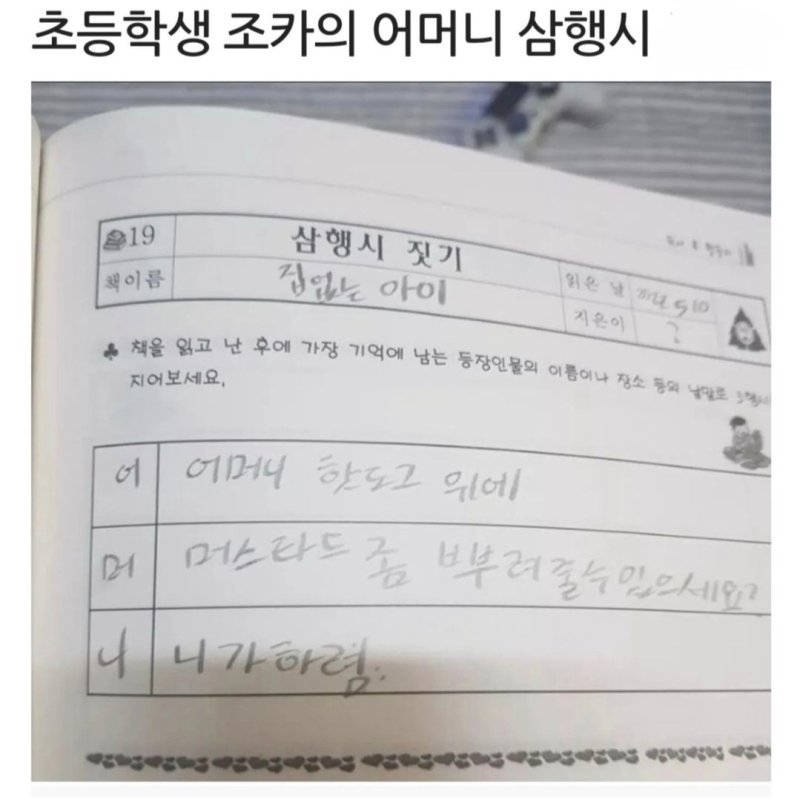 초등학생 조카의 어머니 삼행시
19 삼행시 짓기
책이름 집없는 아이 읽은 날
지은이 ?
♣ 책을 읽고 난 후에 가장 기억에 남는 등장인물의 이름이나 장소 등의 낱말로 3행시
지어보세요.
어 어머니 핫도그 위에
머 머스타드 좀 ㅂ부려줄수있으세요?
니 니가하렴.